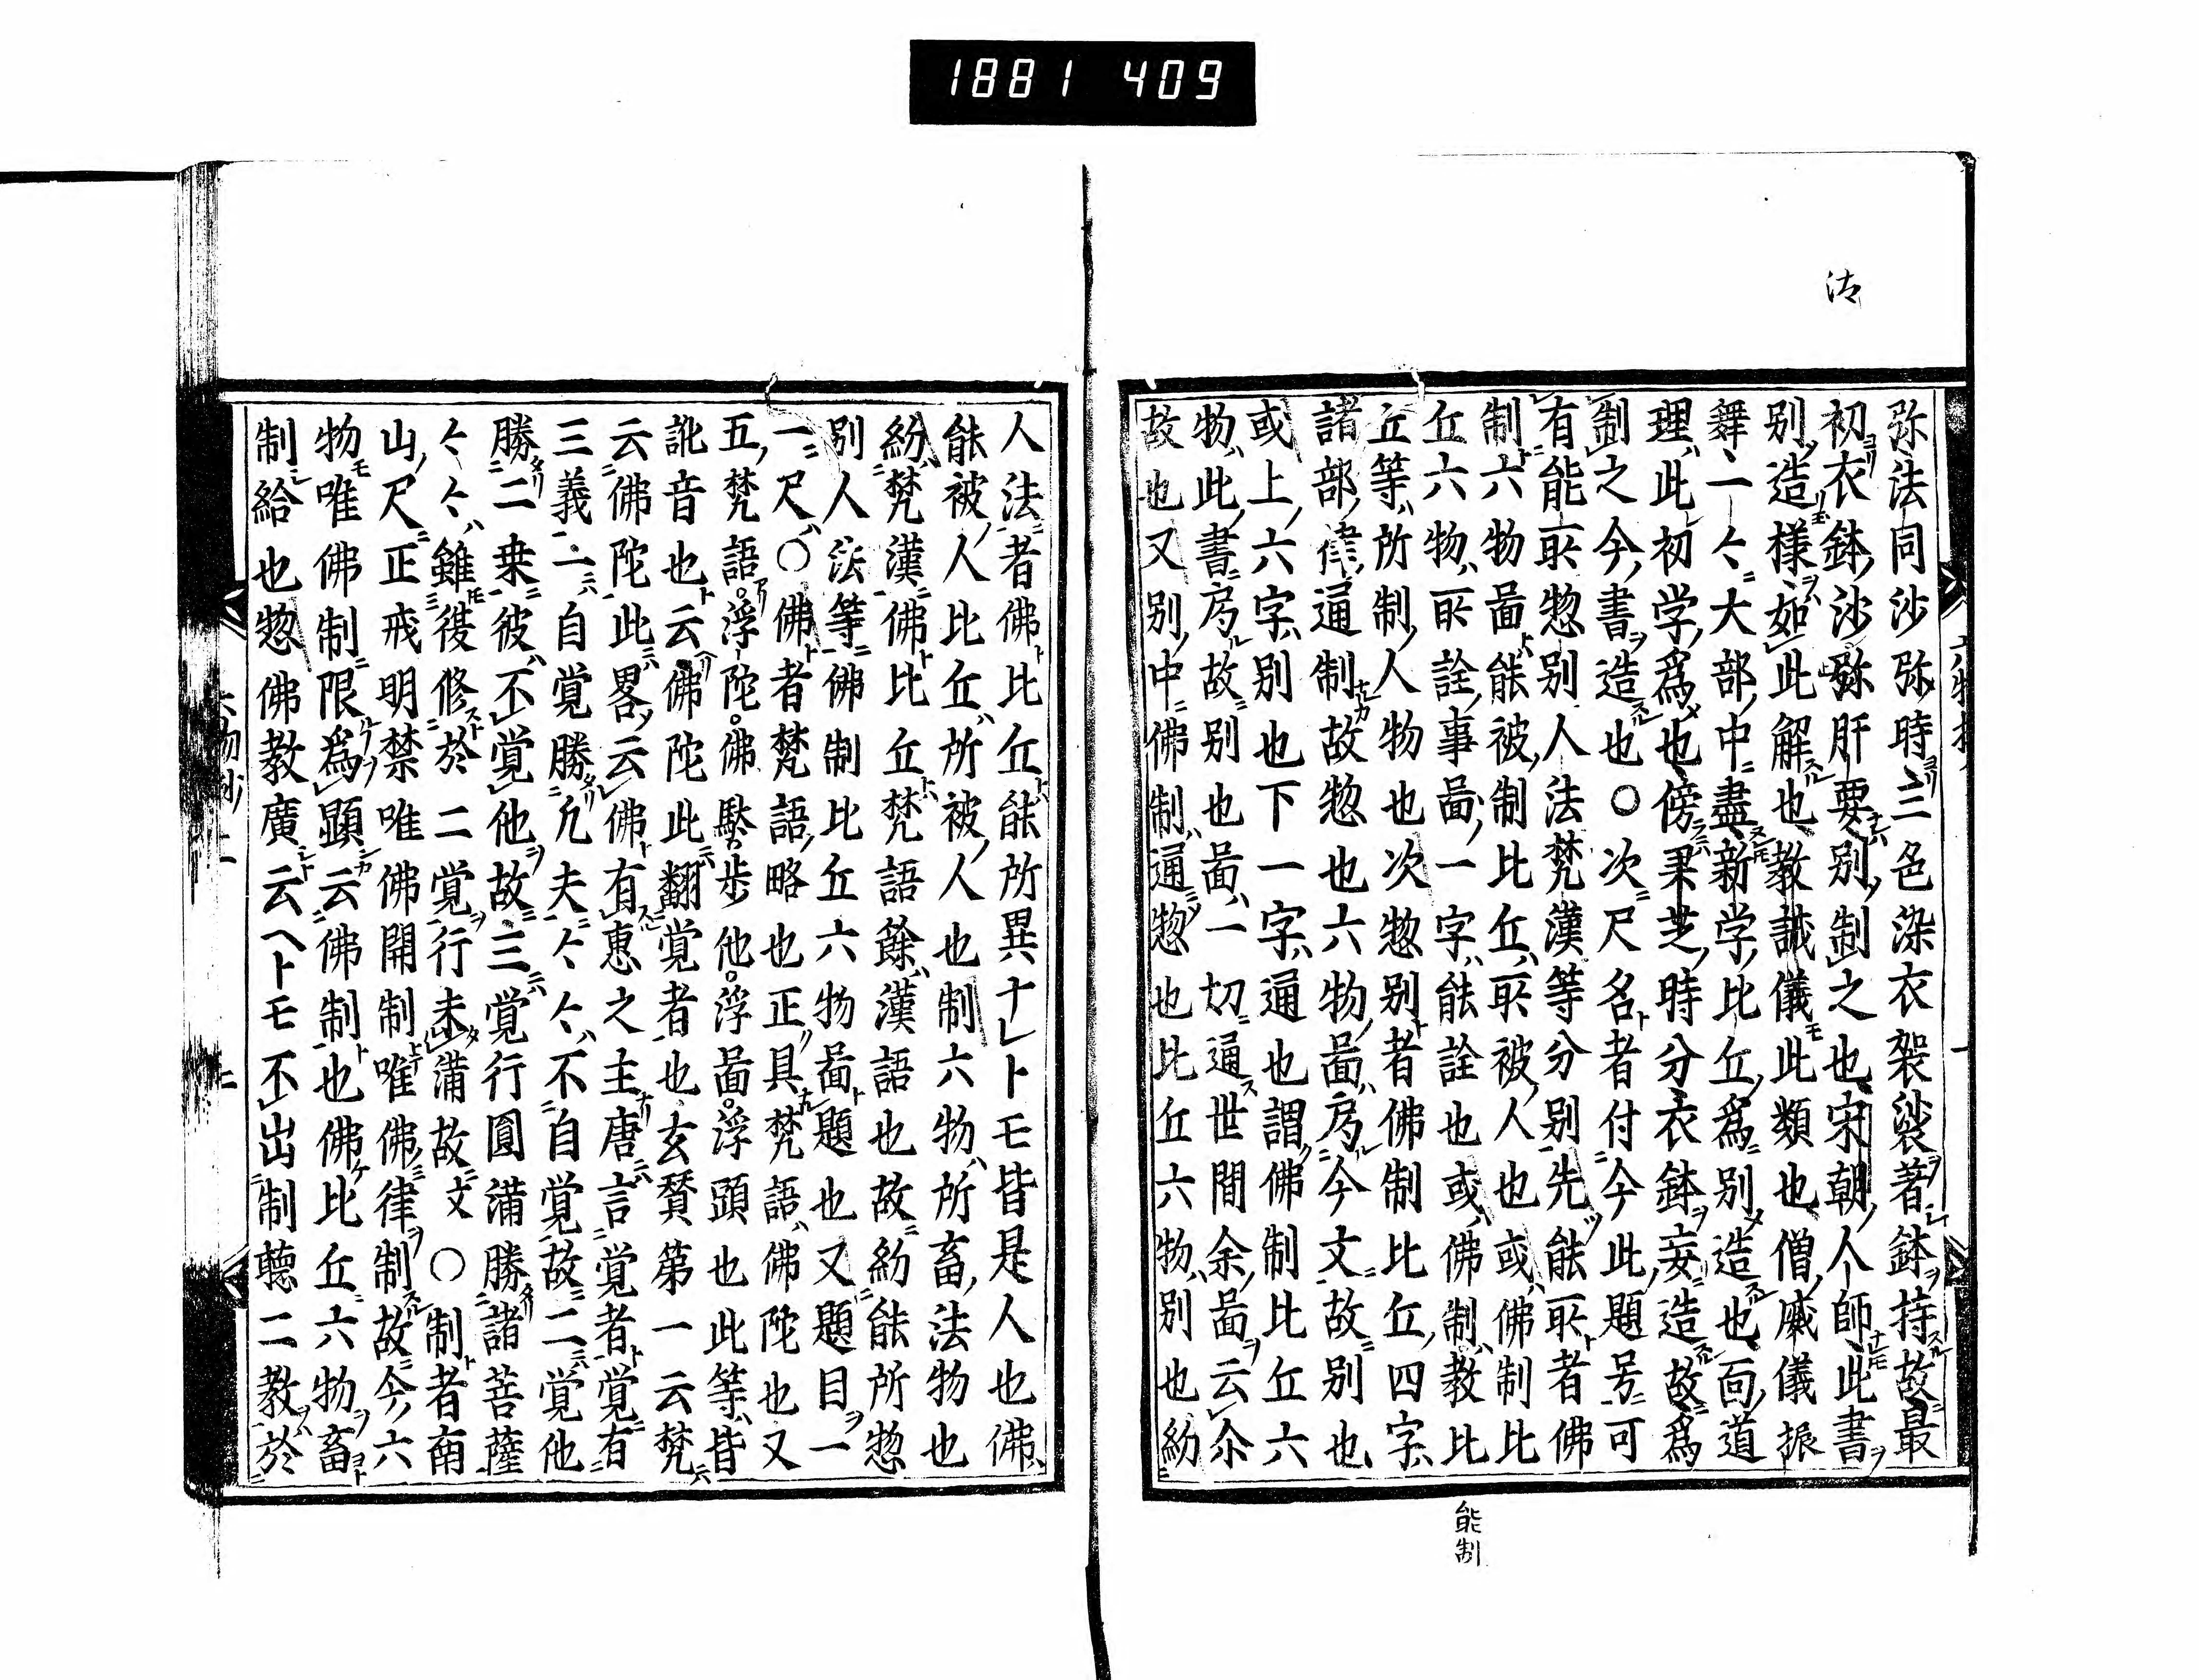 1881 409
法
弥法同沙弥時三色染衣袈裟著鉢持故最
初衣鉢沙弥肝要別制之也宋朝人師此書
別造様如此解也教誡儀此類也僧威儀振
舞一々大部中盡新学比丘爲別造也面道
理此初学爲也傍果芝時分衣鉢妄造故爲
制之今書造也〇次尺名者付今此題号可
有能所惣別人法梵漢等分別先能所者佛
制六物畐能被制比丘所被人也或佛制比
丘六物所詮事畐一字能詮也或佛制教比
丘等所制人物也次惣別者佛制比丘四字
諸部律通制故惣也六物畐局今文故別也
或上六字別也下一字通也謂佛制比丘六
物此書局故別也畐一切通世間余畐云尒
故也又別中佛制通惣也比丘六物別也約
能制
人法者佛比丘能所異ナレトモ皆是人也佛
能被人比丘所被人也制六物所畜法物也
約梵漢佛比丘梵語餘漢語也故約能所惣
別人法等佛制比丘六物畐題也又題目一
一尺〇佛者梵語略也正具梵語佛陀也又
五梵語浮陀佛馱步他浮畐浮頭也此等皆
訛音也云佛陀此翻覚者也玄賛第一云梵
云佛陀此畧云佛有恵之主唐言覚者覚有
三義一自覚勝凢夫々々不自覚故二覚他
勝二乗彼不覚他故三覚行圓満勝諸菩薩
々々雖復修於二覚行未満故文〇制者南
山尺正戒明禁唯佛開制唯佛律制故今六
物唯佛制限爲顕云佛制也佛比丘六物畜
制給也惣佛教廣云ヘトモ不出制聴二教於